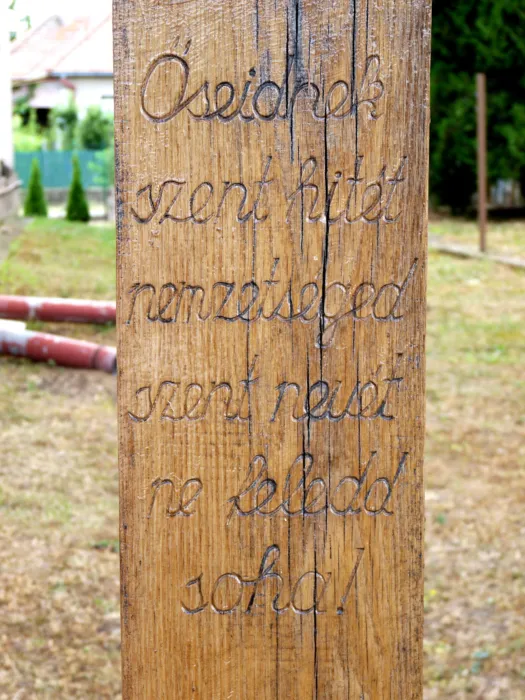 Őseidnek
szent hitét
nemzetséged
szent nevét
ne feledd
soha!